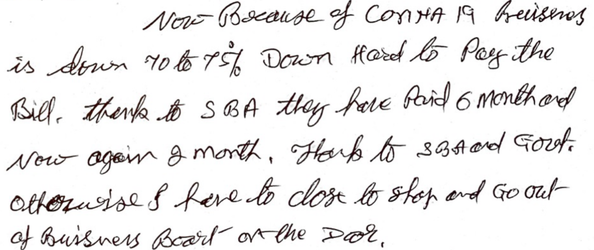 Now Because of CORNA 19 Buisness
is down 70 to 75% Down Hard to Pay the
Bill. thank to SBA they have Paid 6 Month and
Now again 2 month. Thank to SBA and Govt.
otherwise I have to close to shop and Go out
of Buisness Board on the Door.